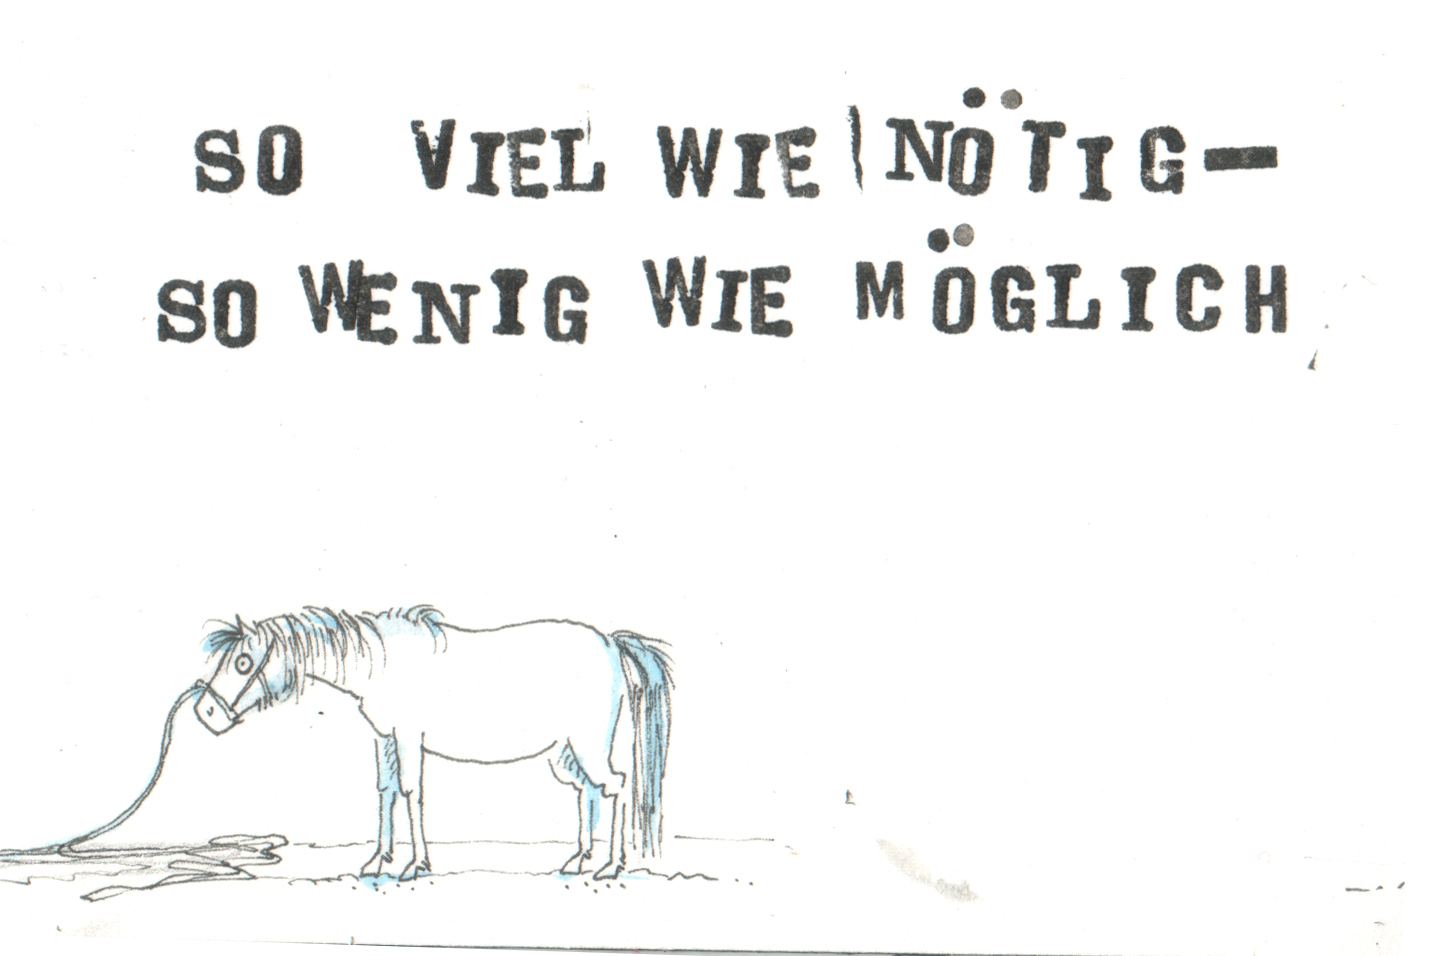 SO VIEL WIE NÖTIG—
SO WENIG WIE MÖGLICH